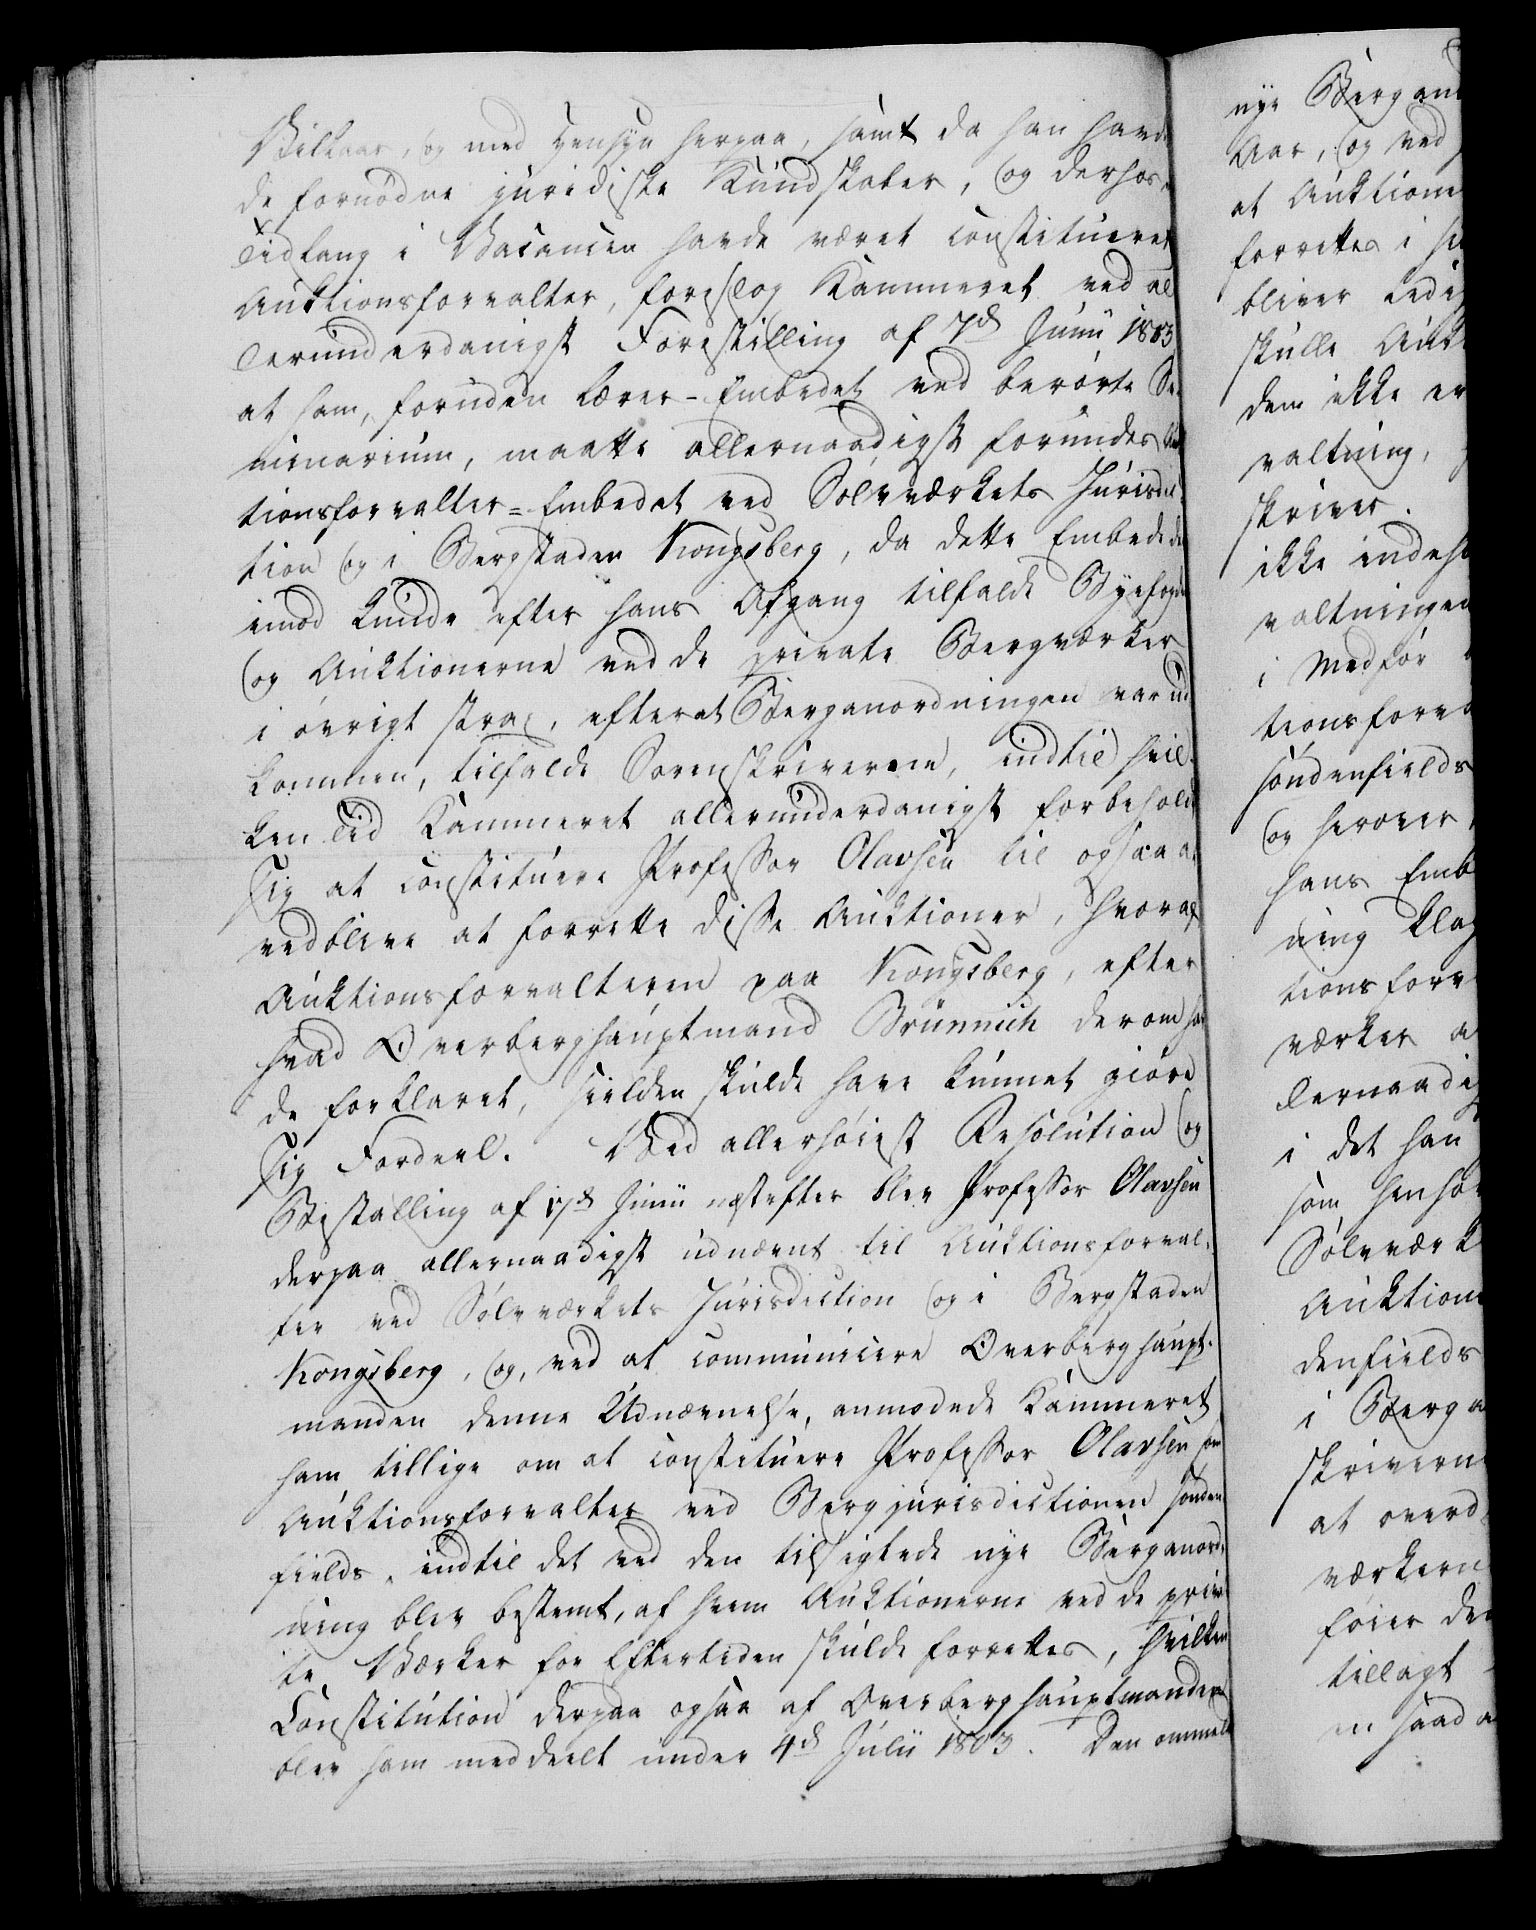 Vilkaar, og med Hensyn herpaa, samt da han havde
de fornødne juridiske Kundskaber, og derhos en
Tidlang i Vacancen havde været constitueret
Auktionsforvalter, foreslog Kammeret ved al
lerunderdanigst Forestilling af 7de Junii 1803
at ham, foruden Lærer-Embedet ved berørte Se-
minarium, maatte allernaadigst forundes Auk
tionsforvalter-Embedet ved Sølvværkets Jurisdic
tion og i Bergstaden Kongsberg, da dette Embede der
imod kunde efter hans Afgang tilfalde Byefogden
og Auktionerne ved de private Bergværker
i øvrigt strax, efterat Berganordningen var ud
kommen, tilfalde Sorenskriverne, indtil hvil-
ken Tid Kammeret allerunderdanigst forbeholdt
sig at constituere Professor Olavsen til ogsaa at
vedblive at forrette disse Auktioner, hvoraf
Auktionsforvalteren paa Kongsberg, efter
hvad Overberghauptmand Brünnich derom hav
de forklaret, sielden skulde have kunnet giøre
sig Fordeel. Ved allerhøiest Resolution og
Bestalling af 17de Junii næstefter blev Professor Olavsen
derpaa allernaadigst udnævnt til Auktionsforval-
ter ved Sølvværkets Jurisdiction og i Bergstaden
Kongsberg, og, ved at communicere Overberghaupt-
manden denne Udnævnelse, anmodede Kammeret
ham tillige om at constituere Professor Olavsen som
Auktionsforvalter ved Bergjurisdictionen sønden
fields, indtil det ved den tilsigtede nye Berganord-
ning blev bestemt, af hvem Auktionerne ved de priva
te Værker for Eftertiden skulde forrettes, hvilken
Constitution derpaa ogsaa af Overberghauptmanden
blev ham meddeelt under 4de Julii 1803. Den ommeld
nye Bergano
Aar, og ved
at Auktione
forrettes i
bliver ledig
skulle Auk
dem ikke er
valtning,
skriver.
ikke indeh
valtningen
i Medfør
tionsforva
søndenfields
og herover
hans Emb
ning klag
tionsforv
værker a
lernaadig
i det han
som henhø
Sølvværk
Auktion
denfields
i Berga
skriverne
at overd
værkern
føier de
tillagt
en saada